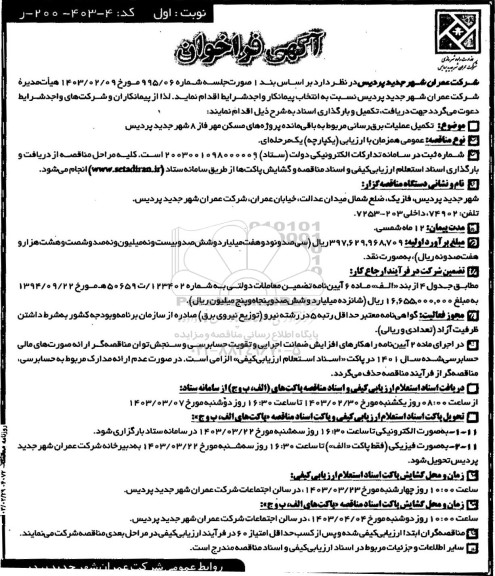 نوبت : اول    کد: ۴-۴۰۳-۲۰۰-ر
آگهی فراخوان
شرکت عمران شهر جدید پردیس در نظر دارد بر اساس بند ۱ صورتجلسه شماره ۹۹۵/۰۶ مورخ ۱۴۰۳/۰۲/۰۹ هیأت مدیره
شرکت عمران شهر جدید پردیس نسبت به انتخاب پیمانکار واجد شرایط اقدام نماید. لذا از پیمانکاران و شرکت‌های واجد شرایط
دعوت می‌گردد جهت دریافت، تکمیل و بارگذاری اسناد به شرح ذیل اقدام نمایند:
موضوع: تکمیل عملیات برق رسانی مربوط به باقی مانده پروژه‌های مسکن مهر فاز ۸ شهر جدید پردیس
نوع مناقصه: عمومی همزمان با ارزیابی (یکپارچه) یک مرحله‌ای.
شماره ثبت در سامانه تدارکات الکترونیکی دولت (ستاد) ۲۰۰۳۰۰۱۰۹۸۰۰۰۰۰۹ است. کلیه مراحل مناقصه از دریافت و
بارگذاری اسناد استعلام ارزیابی کیفی و اسناد مناقصه و گشایش پاکت‌ها از طریق سامانه ستاد (www.setadiran.ir) انجام می‌شود.
نام و نشانی دستگاه مناقصه گزار:
شهر جدید پردیس، فاز یک، ضلع شمال میدان عدالت، خیابان عمران، شرکت عمران شهر جدید پردیس.
تلفن: ۷۴۹۰۲، داخلی ۲۰۳-۷۲۵۳
مدت پیمان: ۱۲ ماه شمسی.
مبلغ برآورد اولیه: ۳۹۷,۶۲۹,۹۶۸,۷۰۹ ریال (سیصد و نود و هفت میلیارد و ششصد و بیست و نه میلیون و نهصد و شصت و هشت هزار و
هفتصد و نه ریال)، به صورت نقد.
تضمین شرکت در فرآیند ارجاع کار:
مطابق جدول ۴ از بند «الف» ماده ۶ آیین‌نامه تضمین معاملات دولتی به شماره ۱۲۳۴۰۲/ت۵۰۶۵۹هـ مورخ ۱۳۹۴/۰۹/۲۲
به مبلغ ۱۶,۶۵۵,۰۰۰,۰۰۰ ریال (شانزده میلیارد و ششصد و پنجاه و پنج میلیون ریال).
مجوز فعالیت: گواهی‌نامه معتبر حداقل رتبه ۵ در رشته نیرو (توزیع نیروی برق) صادره از سازمان برنامه و بودجه کشور به شرط داشتن
ظرفیت آزاد (تعدادی و ریالی).
در اجرای ماده ۲ آیین‌نامه راهکارهای افزایش ضمانت اجرایی و تقویت حسابرسی و سنجش توان مناقصه‌گر ارائه صورت‌های مالی
حسابرسی شده سال ۱۴۰۱ در پاکت «اسناد استعلام ارزیابی کیفی» الزامی است. در صورت عدم ارائه مدارک مربوط به حسابرسی،
مناقصه‌گر از فرآیند مناقصه حذف می‌گردد.
دریافت اسناد استعلام ارزیابی کیفی و اسناد مناقصه پاکت‌های (الف، ب و ج) از سامانه ستاد:
از ساعت ۰۸:۰۰ روز یکشنبه مورخ ۱۴۰۳/۰۲/۳۰ تا ساعت ۱۶:۳۰ روز دوشنبه مورخ ۱۴۰۳/۰۳/۰۷
تحویل پاکت اسناد استعلام ارزیابی کیفی و پاکت اسناد مناقصه «پاکت‌های الف، ب و ج»:
۱۱-۱-به صورت الکترونیکی تا ساعت ۱۶:۳۰ روز سه‌شنبه مورخ ۱۴۰۳/۰۳/۲۲ در سامانه ستاد بارگزاری شود.
۱۱-۲-به صورت فیزیکی (فقط پاکت «الف») تا ساعت ۱۶:۳۰ روز سه‌شنبه مورخ ۱۴۰۳/۰۳/۲۲ به دبیرخانه شرکت عمران شهر جدید
پردیس تحویل شود.
زمان و محل گشایش پاکت اسناد استعلام ارزیابی کیفی:
ساعت ۱۰:۰۰ روز چهارشنبه مورخ ۱۴۰۳/۰۳/۲۳، در سالن اجتماعات شرکت عمران شهر جدید پردیس.
زمان و محل گشایش پاکت اسناد مناقصه «پاکت‌های الف، ب و ج»:
ساعت ۱۰:۰۰ روز دوشنبه مورخ ۱۴۰۳/۰۴/۰۴ در سالن اجتماعات شرکت عمران شهر جدید پردیس.
مناقصه‌گران ابتدا ارزیابی کیفی شده و پس از کسب حداقل امتیاز ۶۰ در فرآیند ارزیابی کیفی در مراحل بعدی مناقصه شرکت می‌نمایند.
سایر اطلاعات و جزئیات مربوط در اسناد ارزیابی کیفی و اسناد مناقصه مندرج است.
روابط عمومی شرکت عمران شهر جدید پردیس